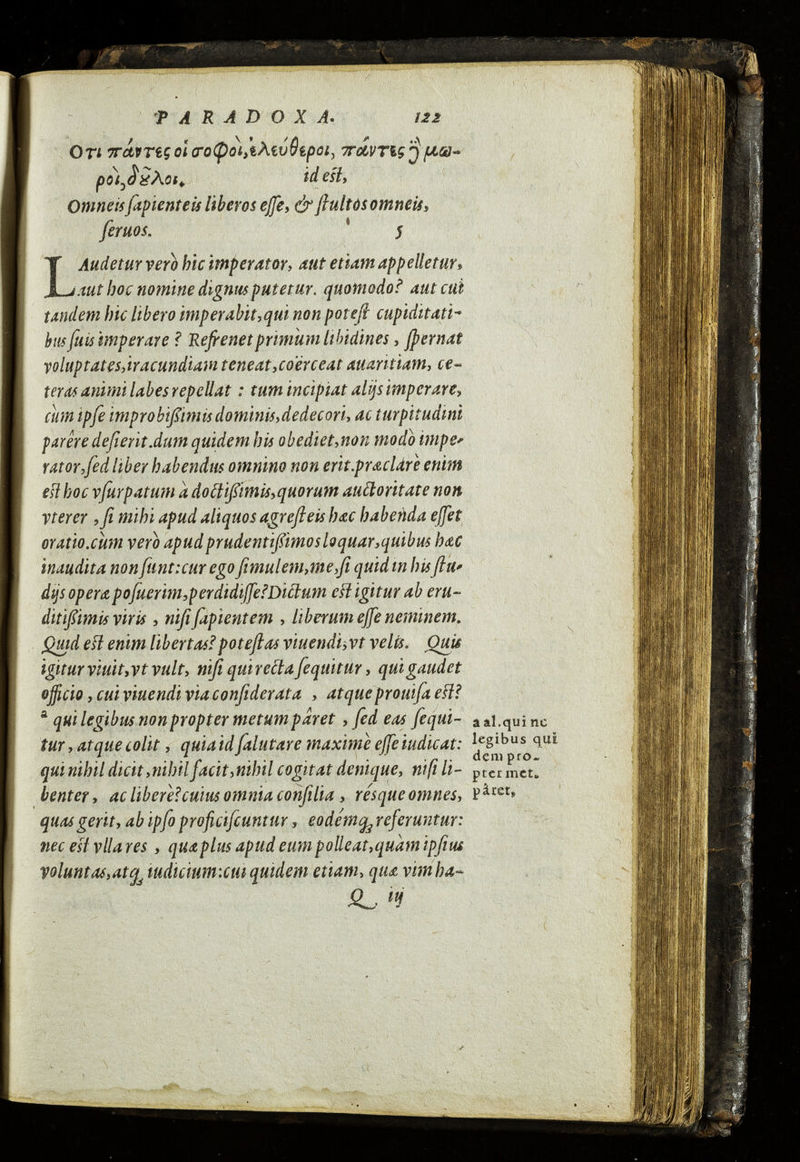 PARADOXA. 122
Ὅτι πάντες οἱ σοφοὶ, ἐλεύθεροι, πάντες ἢ μω-
ροὶ, δȣ͂λοι. id est,
Omneis sapienteis liberos esse, & stultos omneis,
seruos. 5
LAudetur verò hic imperator, aut etiam appelletur,
aut hoc nomine dignus putetur. quomodo? aut cui
tandem hic libero imperabit, qui non potest cupiditati-
bus suis imperare? Refrenet primùm libidines, spernat
voluptates, iracundiam teneat, coërceat auaritiam, ce-
teras animi labes repellat: tum incipiat alijs imperare,
cùm ipse improbißimis dominis, dedecori, ac turpitudini
parêre desierit. dum quidem his obediet, non modò impe-
rator, sed liber habendus omnino non erit. præclarè enim
est hoc vsurpatum à doctißimis, quorum auctoritate non
vterer, si mihi apud aliquos agresteis hæc habenda esset
oratio. cùm verò apud prudentißimos loquar, quibus hæc
inaudita non sunt: cur ego simulem, me, si quid in his stu-
dijs operæ posuerim, perdidisse? Dictum est igitur ab eru-
ditißimis viris, nisi sapientem, liberum esse neminem.
Quid est enim libertas? potestas viuendi, vt velis. Quis
igitur viuit, vt vult, nisi qui recta sequitur, qui gaudet
officio, cui viuendi via considerata, atque prouisa est?
a qui legibus non propter metum paret, sed eas sequi-
tur, atque colit, quia id salutare maximè esse iudicat:
qui nihil dicit, nihil facit, nihil cogitat denique, nisi li-
benter, ac liberè? cuius omnia consilia, résque omnes,
quas gerit, ab ipso proficiscuntur, eodémq; referuntur:
nec est vlla res, quæ plus apud eum polleat, quàm ipsius
voluntas, atq; iudicium: cui quidem etiam, quæ vim ha-
Q iij
a al. qui ne
legibus qui
dem pro-
pter met.
pàret,